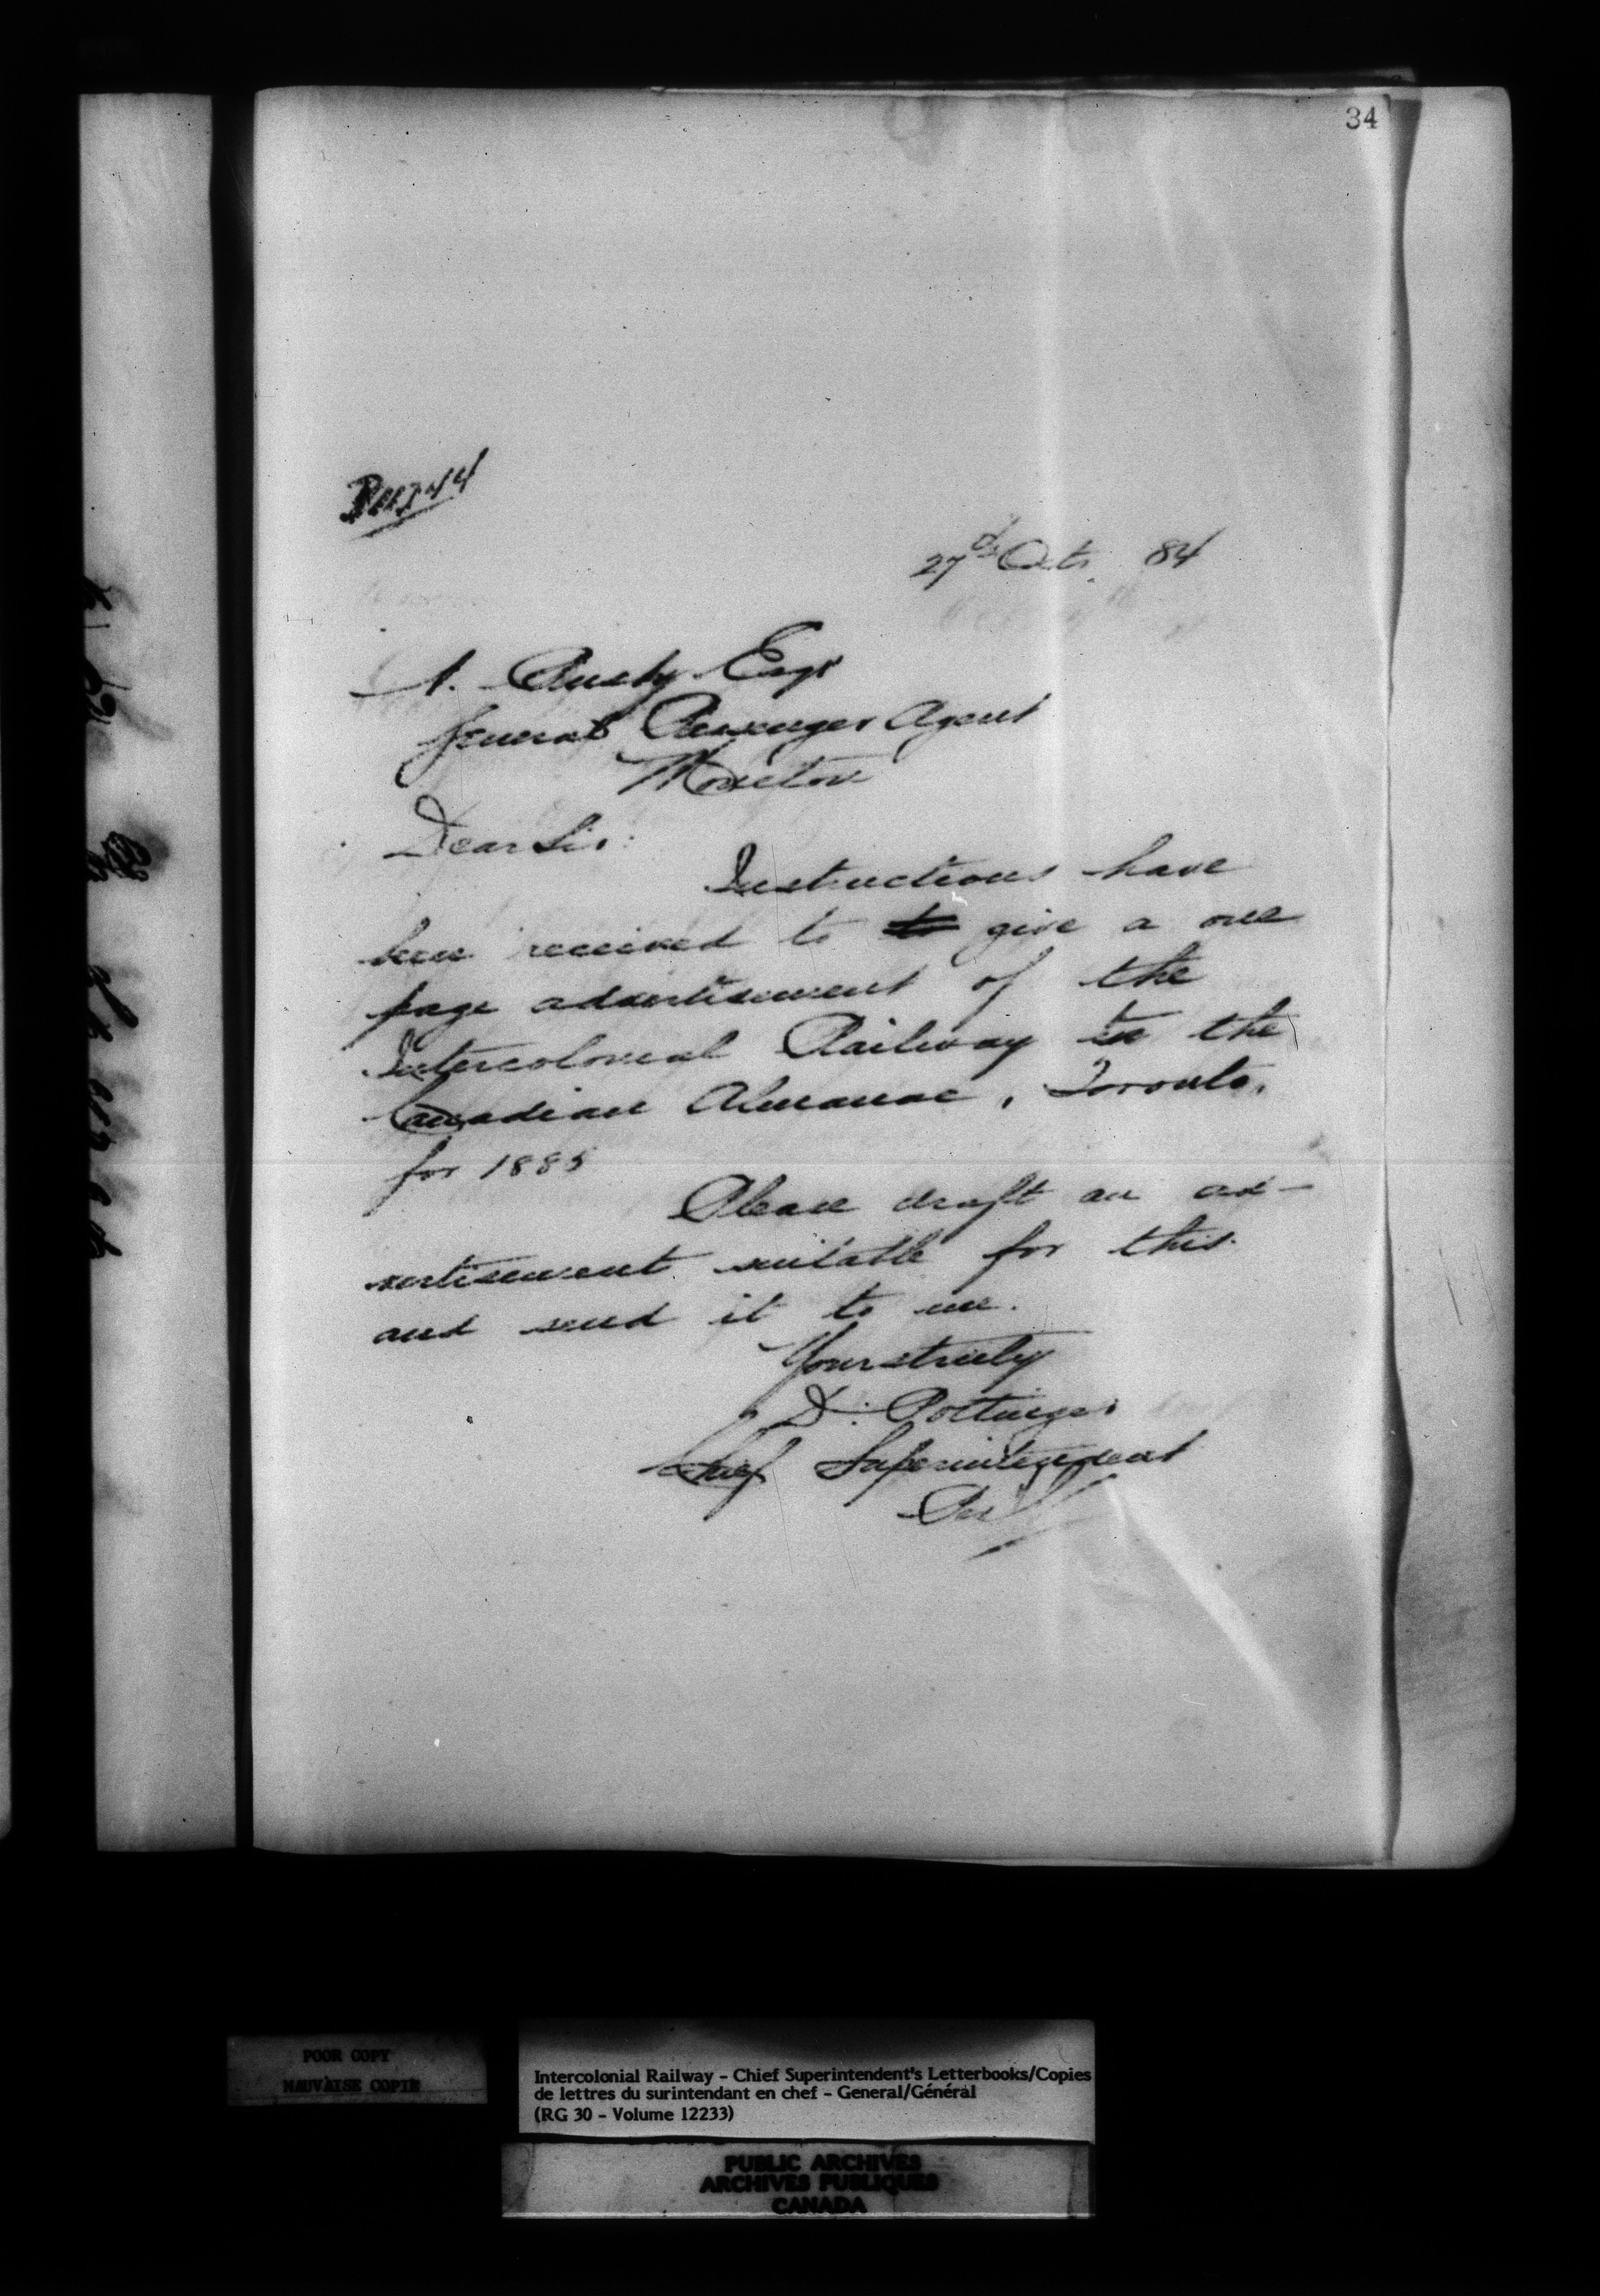 34
27th Oct. 84
A. Busby Esqr
General Passenger Agent
Moncton
Dear Sir:
Instructions have
been received to to give a one
page advertisement of the
Intercolonial Railway in the
Canadian Almanac, Toronto,
for 1885
Please draft an ad-
vertisement suitable for this
and send it to me.
Yours truly
D. Pottinger
Chief Superintendent
Per
POOR COPY
MAUVAISE COPIE
Intercolonial Railway - Chief Superintendent's Letterbooks/Copies
de lettres du surintendant en chef - General/Général
(RG 30 - Volume 12233)
PUBLIC ARCHIVES
ARCHIVES PUBLIQUES
CANADA